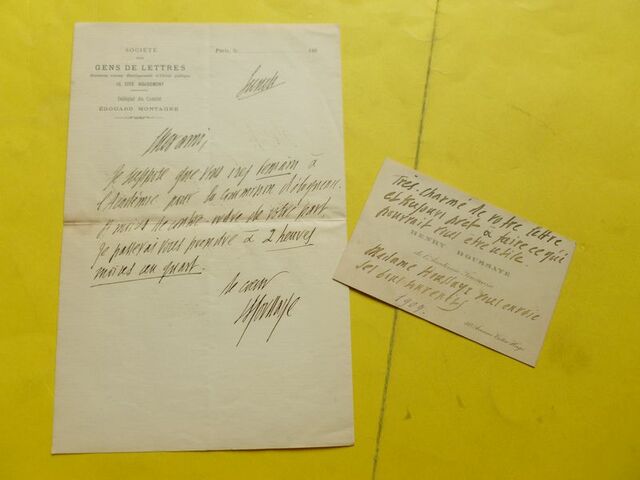 SOCIÉTÉ
DES
GENS DE LETTRES
Reconnue comme Établissement d'Utilité publique
CITÉ ROUGEMONT
Délégué du Comité
ÉDOUARD MONTAGNE
Paris, le 189
Lundi
Mon ami,
Je suppose que vous irez demain à
l'Académie pour la commission d'éloquence.
votre de votre part.
Je passerai vous prendre à 2 heures
moins un quart.
de cœur
HHoussaye
Très charmé de votre lettre
et toujours prêt à faire ce qui
pourrait vous être utile.
HENRY HOUSSAYE
de l'Académie Française
Madame Houssaye vous envoie
ses
1909.
Avenue Victor Hugo